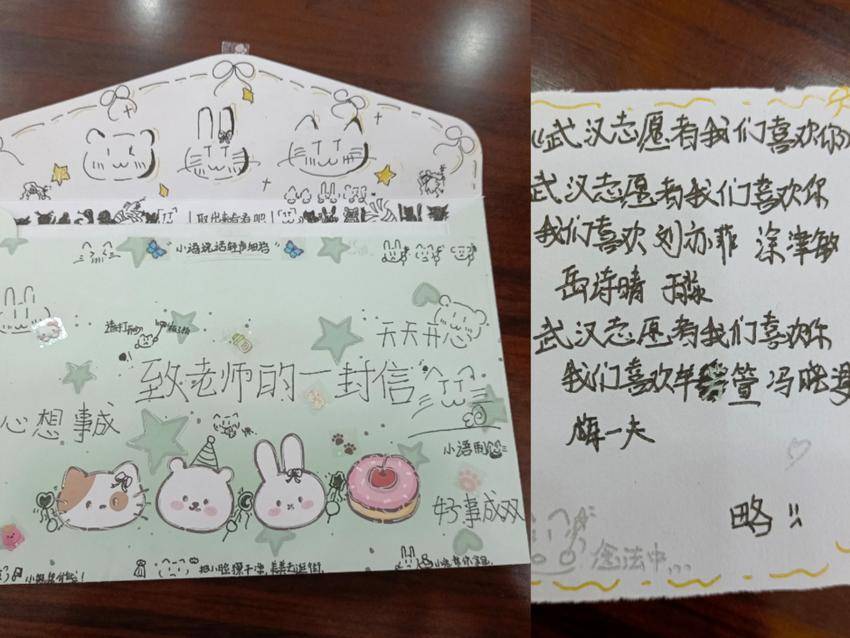 取出来看看吧
小语说话轻声细语
请打开
天天开心
致老师的一封信
心想事成
好事成双
《武汉志愿者我们喜欢你》
武汉志愿者我们喜欢你
我们喜欢刘亦菲 涂津敏
岳诗晴
武汉志愿者我们喜欢你
我们喜欢 萱 冯晓
一夫
略!!
念法中...